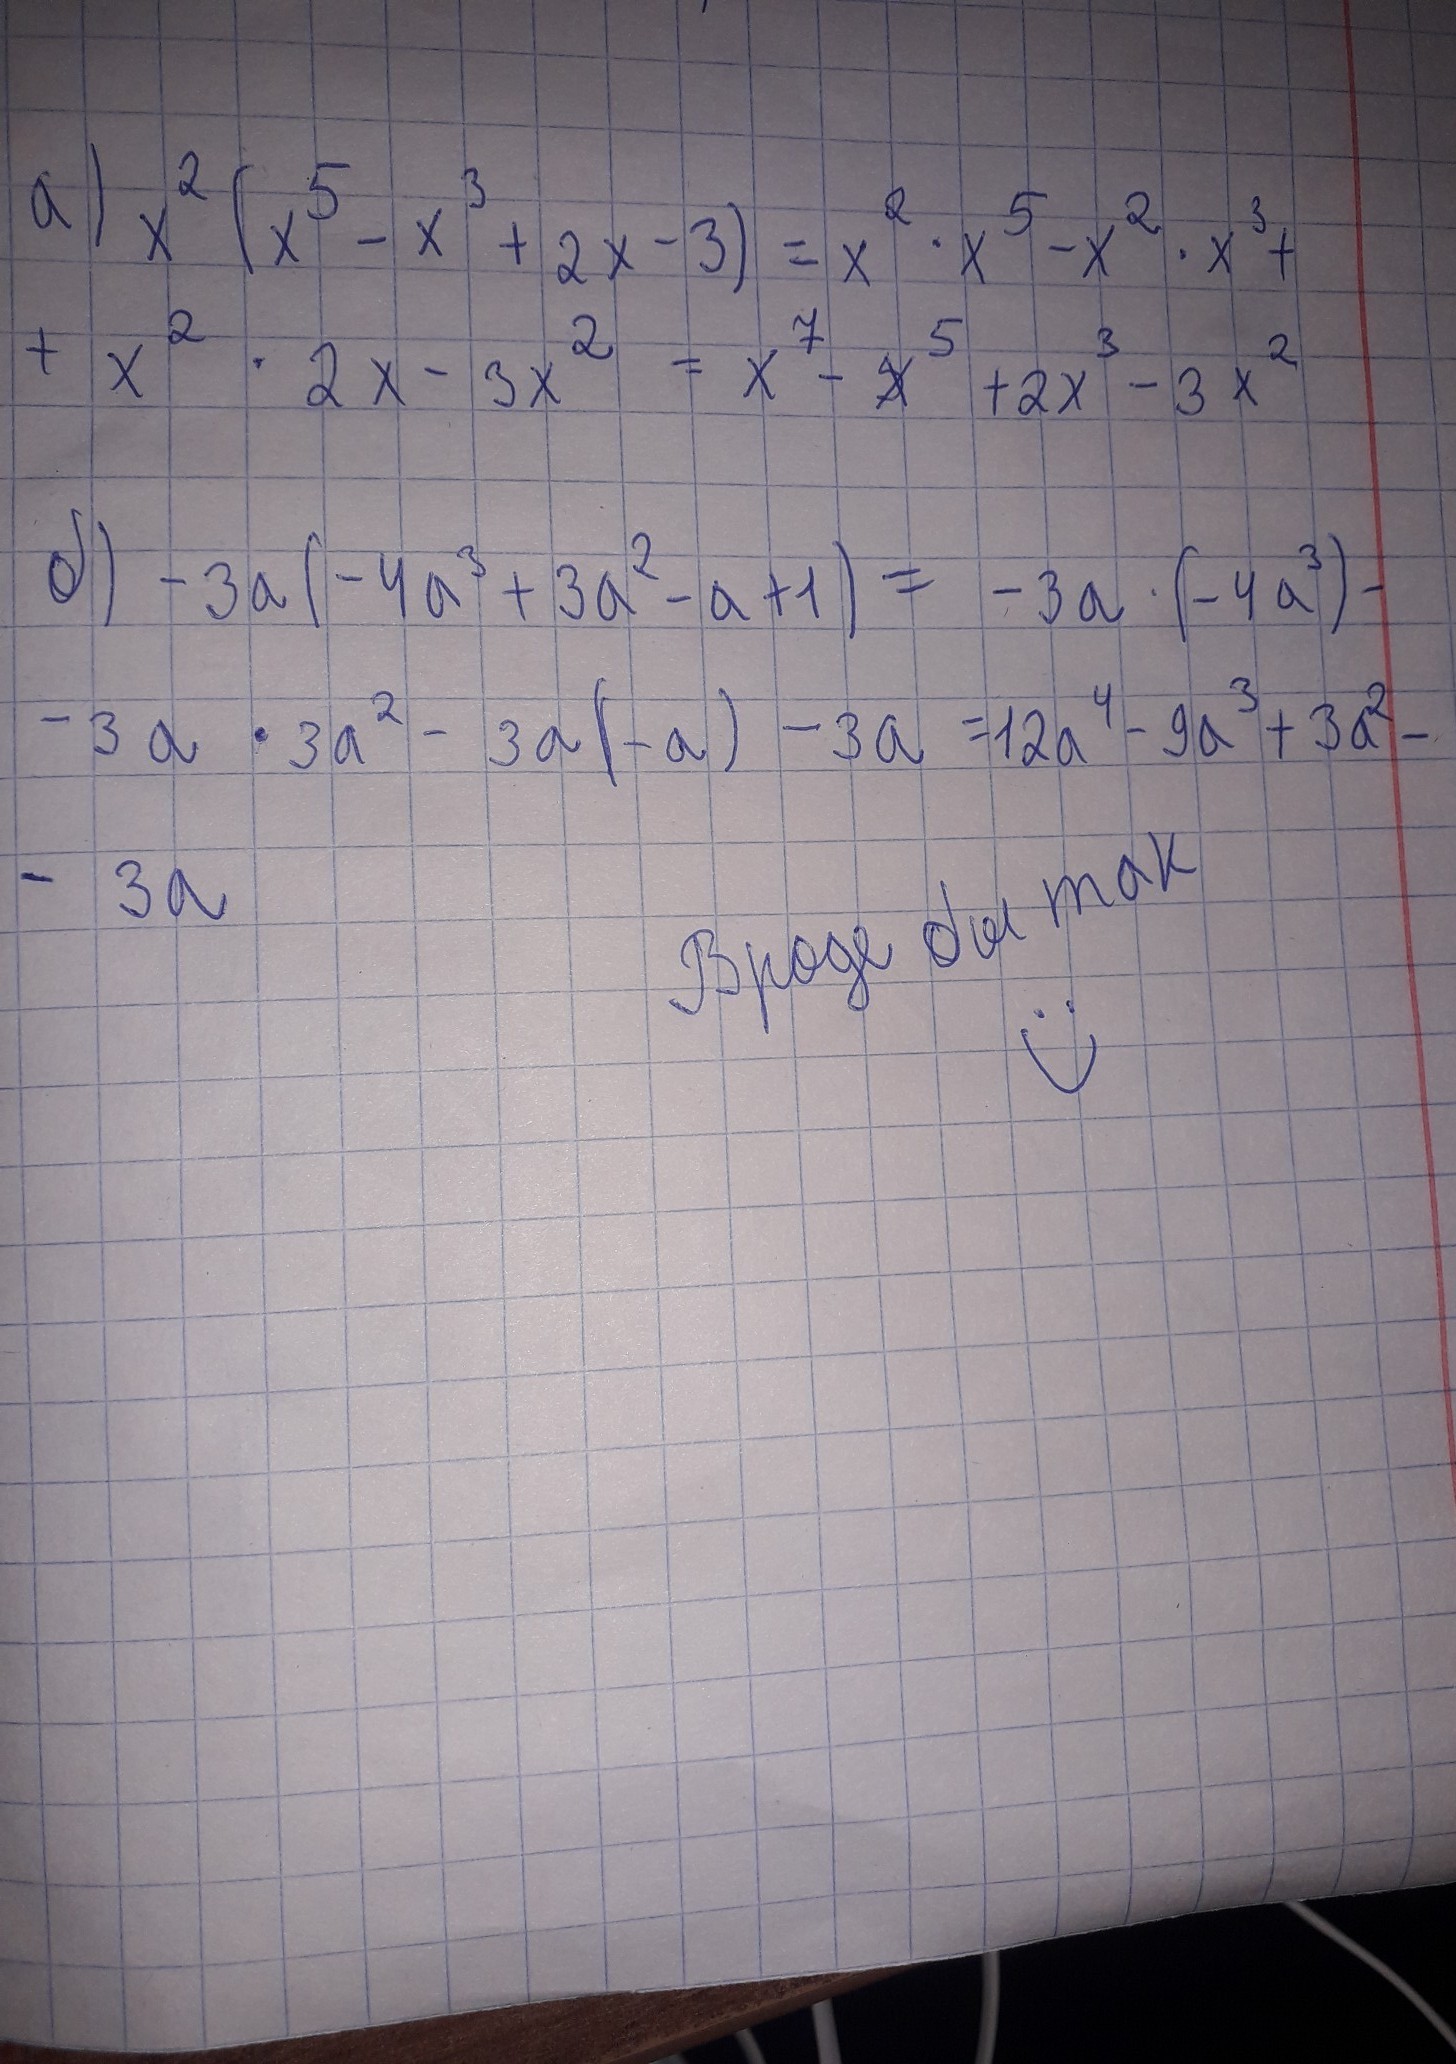 а) x² (x⁵ - x³ + 2x - 3) = x² · x⁵ - x² · x³ +
+ x² · 2x - 3x² = x⁷ - x⁵ + 2x³ - 3x²
б) -3a (-4a³ + 3a² - a + 1) = -3a · (-4a³) -
- 3a · 3a² - 3a (-a) - 3a = 12a⁴ - 9a³ + 3a² -
- 3a
Вроде бы так